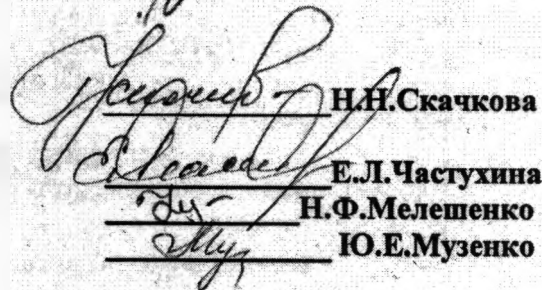 Н.Н.Скачкова
Е.Л.Частухина
Н.Ф.Мелешенко
Ю.Е.Музенко